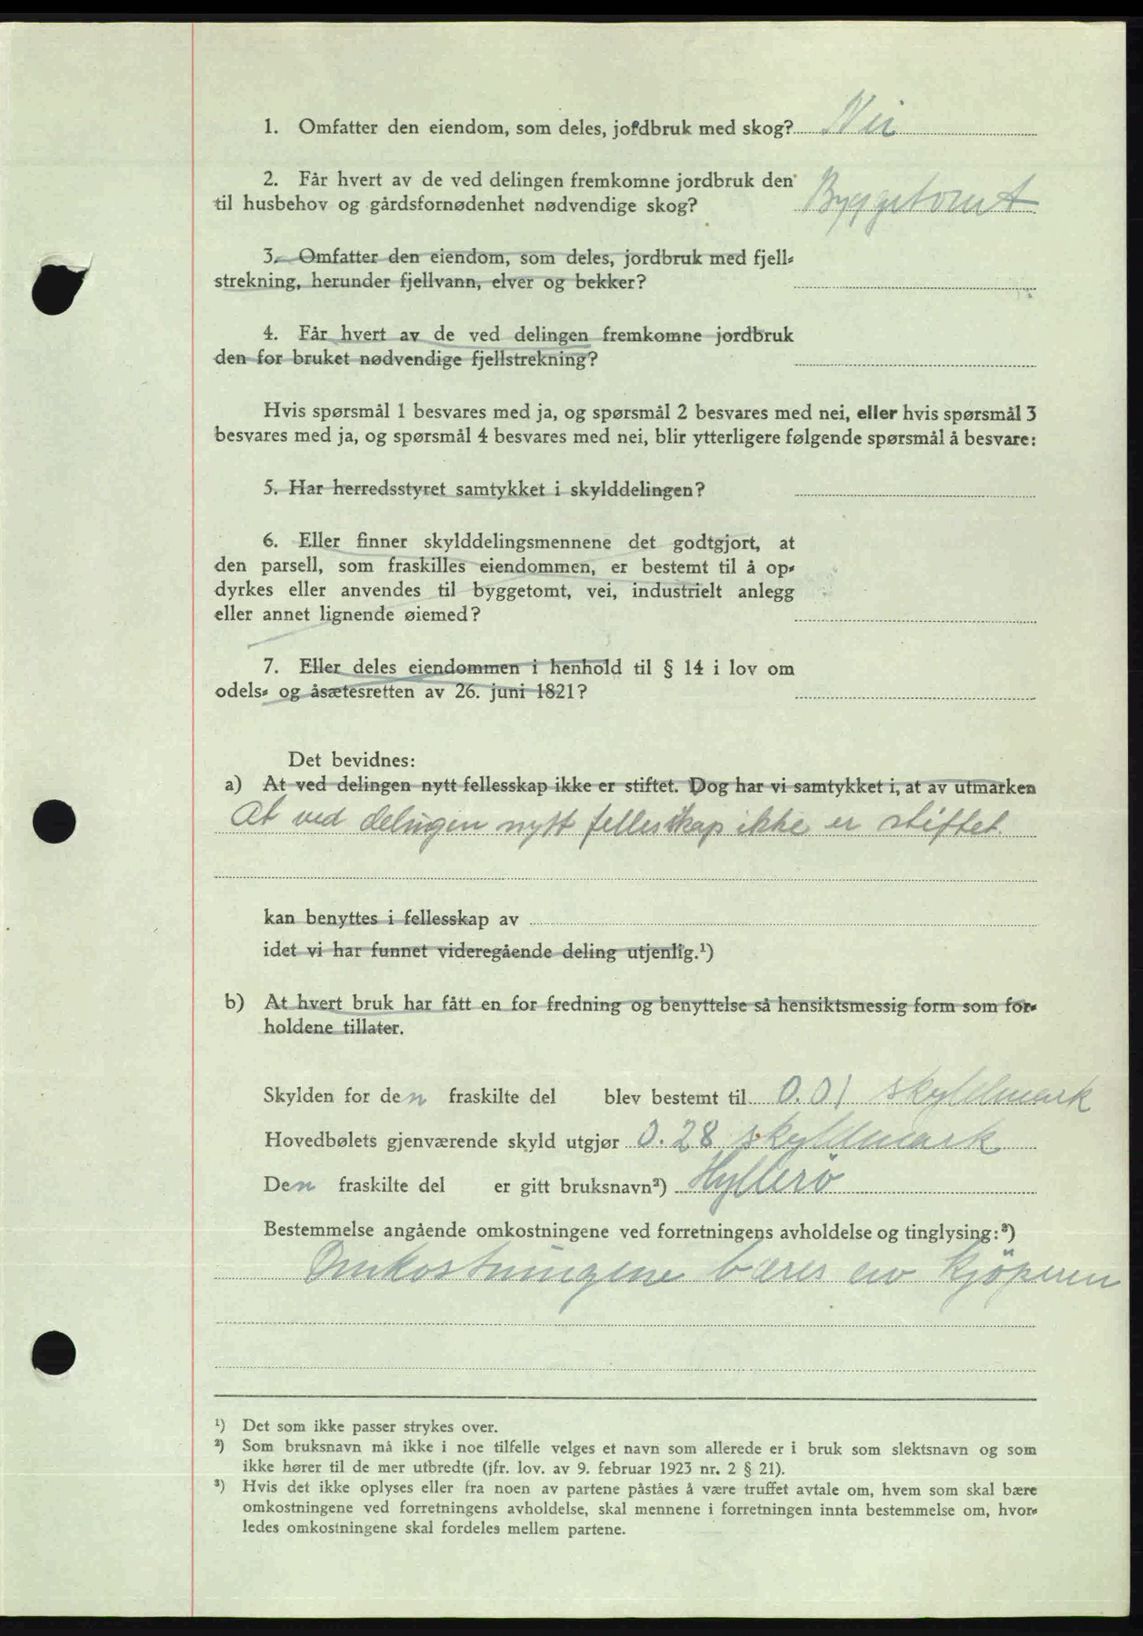 1. Omfatter den eiendom, som deles, jordbruk med skog? Nei
2. Får hvert av de ved delingen fremkomne jordbruk den
til husbehov og gårdsfornødenhet nødvendige skog? Byggetomt
3. Omfatter den eiendom, som deles, jordbruk med fjell-
strekning, herunder fjellvann, elver og bekker?
4. Får hvert av de ved delingen fremkomne jordbruk
den for bruket nødvendige fjellstrekning?
Hvis spørsmål 1 besvares med ja, og spørsmål 2 besvares med nei, eller hvis spørsmål 3
besvares med ja, og spørsmål 4 besvares med nei, blir ytterligere følgende spørsmål å besvare:
5. Har herredsstyret samtykket i skylddelingen?
6. Eller finner skylddelingsmennene det godtgjort, at
den parsell, som fraskilles eiendommen, er bestemt til å op-
dyrkes eller anvendes til byggetomt, vei, industrielt anlegg
eller annet lignende øiemed?
7. Eller deles eiendommen i henhold til § 14 i lov om
odels- og åsætesretten av 26. juni 1821?
Det bevidnes:
a) At ved delingen nytt fellesskap ikke er stiftet. Dog har vi samtykket i, at av utmarken
At ved delingen nytt fellesskap ikke er stiftet.
kan benyttes i fellesskap av
idet vi har funnet videregående deling utjenlig.¹)
b) At hvert bruk har fått en for fredning og benyttelse så hensiktsmessig form som for-
holdene tillater.
Skylden for den fraskilte del blev bestemt til 0.01 skyldmark
Hovedbølets gjenværende skyld utgjør 0.28 skyldmark
Den fraskilte del er gitt bruksnavn²) Hyllerö
Bestemmelse angående omkostningene ved forretningens avholdelse og tinglysing:³)
Omkostningene bæres av kjöperen
¹) Det som ikke passer strykes over.
²) Som bruksnavn må ikke i noe tilfelle velges et navn som allerede er i bruk som slektsnavn og som
ikke hører til de mer utbredte (jfr. lov. av 9. februar 1923 nr. 2 § 21).
³) Hvis det ikke oplyses eller fra noen av partene påståes å være truffet avtale om, hvem som skal bære
omkostningene ved forretningens avholdelse, skal mennene i forretningen innta bestemmelse om, hvor-
ledes omkostningene skal fordeles mellem partene.